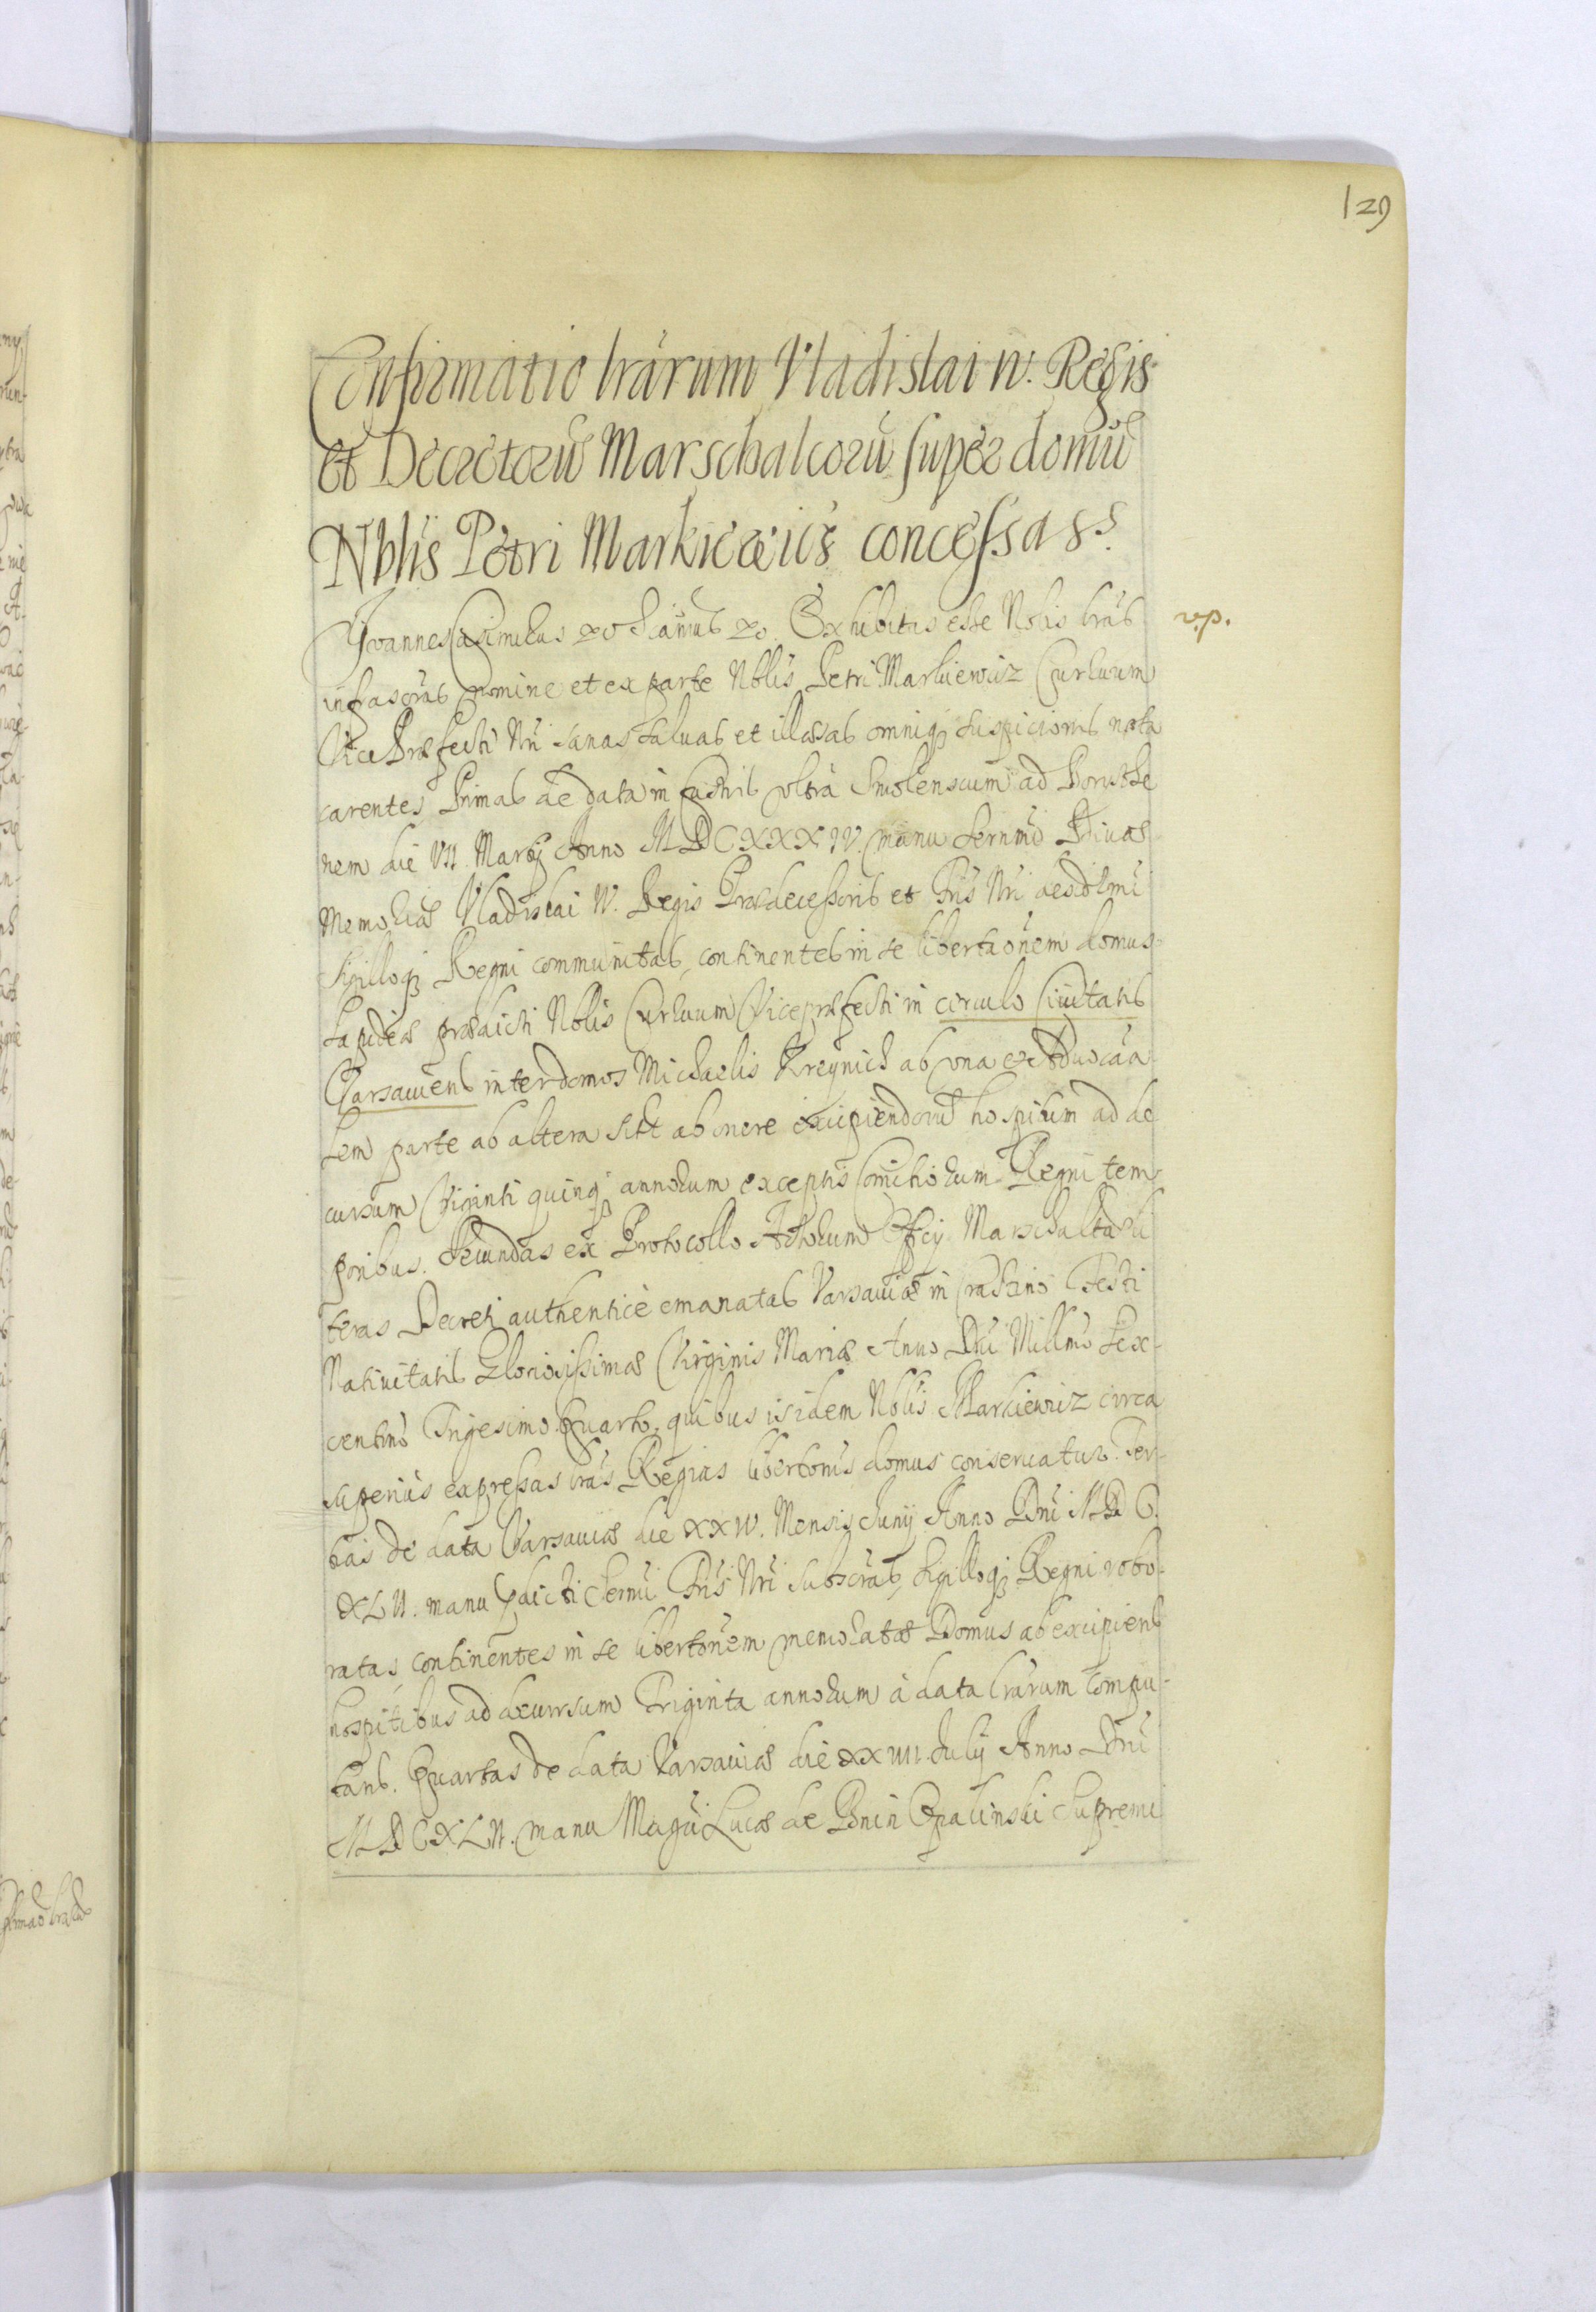 129
Confirmatio lrarum Vladislai IV. Regis
et Decretorũ Marschalcorũ super domũ
Nblis Petri Markiewicz concessa ss.
Joannes Casimirus &c Sigmus &c. Exhibitas esse Nobis lras
v.p.
infrascras nomine et ex parte Nblis Petri Markiewicz Curluum
Vice Præfecti Nri sanas saluas et illæsas omniq; suspicionis nota
carentes, Primas de data in Castris vltra Smolenscum ad Boristhe
nem die VII. Martij Anno MDCXXXIV. manu Sernmi Diuæ
Memoriæ Vladislai IV. Regis Prædecessoris et Fris Nri desidmi
Sigilloq; Regni communitas, continentes in se libertaonem domus
Lapideæ prædicti Nblis Curluum Viceprefecti in circulo Ciuitatis
Varsauiens inter domos Michaelis Kreynich ab vna et
lem parte ab altera sitæ ab onere excipiendorũ hospitum ad de
cursum Viginti quinq; annorum exceptis Comitiorum Regni tem
poribus. Secundas ex Protocollo Actorum Officij Marschalca
teras Decreti authenticè emanatas Varsauiæ in Crastino Festi
Natiuitatis Gloriosissimæ Virginis Mariæ Anno Dni Millmo sex-
centmo Trigesimo Quarto, quibus isidem Nblis Markiewicz circa
superius expressas lras Regias libertonis domus conseruatur. Ter-
tias de data Varsauiæ die XXIV. Mensis Junij Anno Dni MDC
XLII. manu pdicti Sernmi Fris Nri subscras, Sigilloq; Regni robo-
ratas continentes in se libertonem memoratæ Domus ab excipiens
hospitibus ad decursum Triginta annorum à data lrarum compu-
tans. Quartas de data Varsauiæ die XXVIII. Julij Anno Dni
MDCXLII. manu Magci Lucæ de Bnin Opalinski Supremi